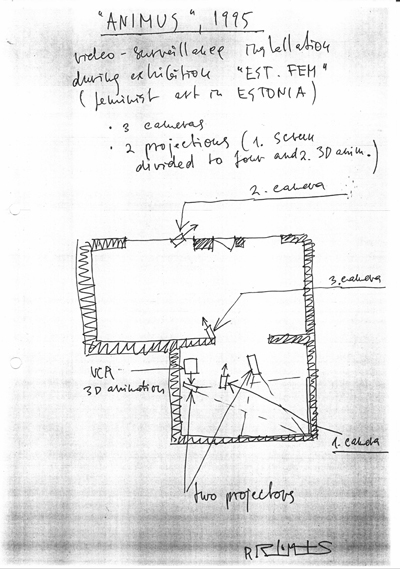 "ANIMUS", 1995
video-surveillance installation
during exhibition "EST. FEM"
(feminist art in ESTONIA)
• 3 cameras
• 2 projections (1. screen
divided to four and 2. 3D anim.)
2. camera
3. camera
VCR
3D animation
1. camera
two projectors